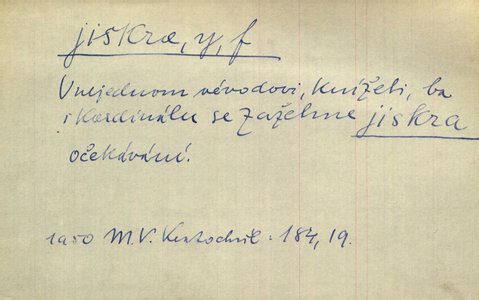 jiskra, y, f
V nejednom vévodovi, knížeti, ba
i kardinálu se zažehne jiskra
očekávání.
1950 M.V. Kratochvíl · 184, 19.